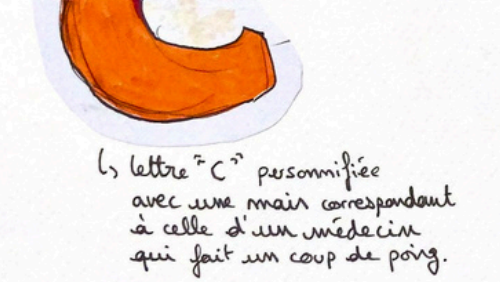 ↳ lettre "C" personnifiée
avec une main correspondant
à celle d'un médecin
qui fait un coup de poing.